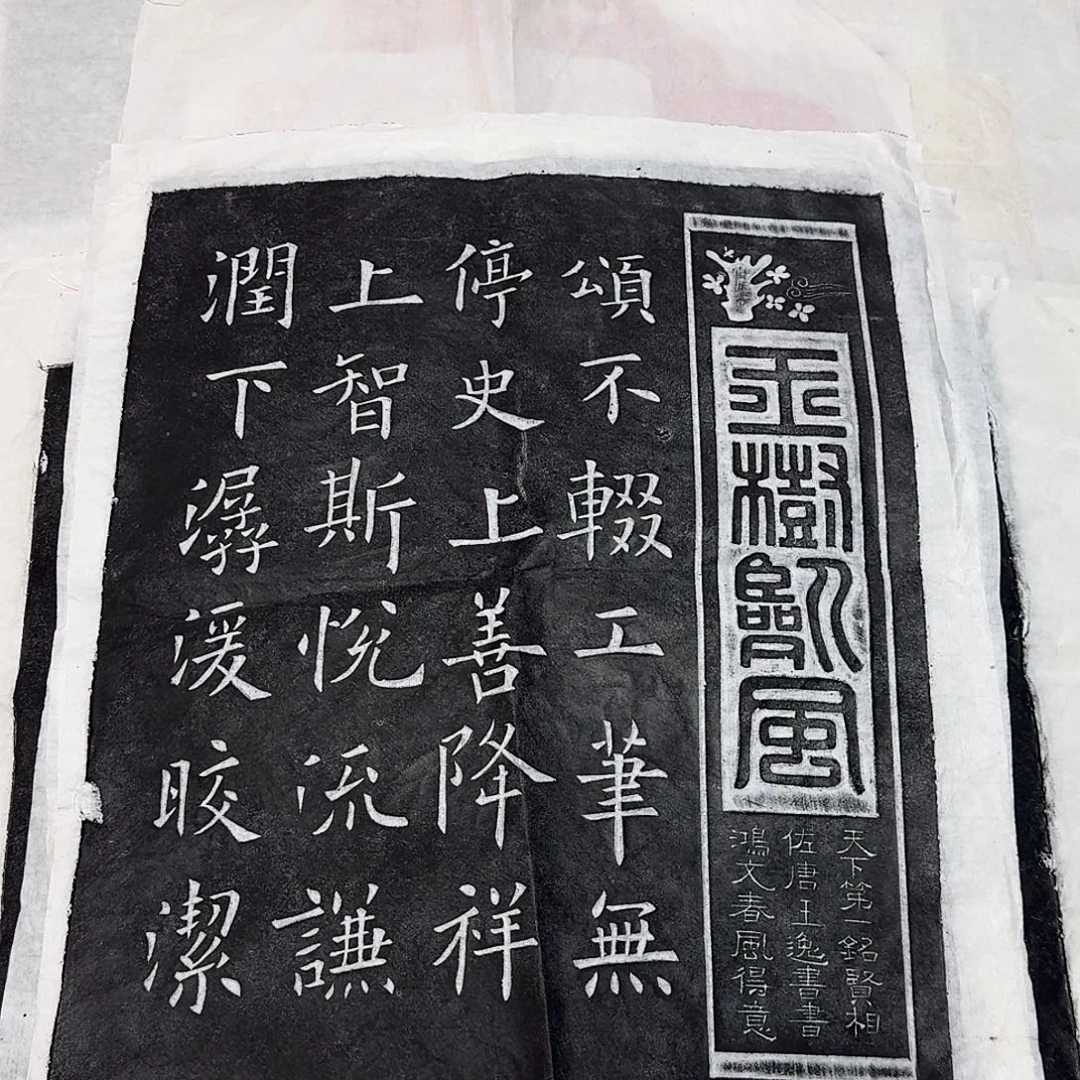 玉樹臨風
天下第一銘賢相
佐唐王逸書書
鴻文春風得意
頌不輟工筆無
停史上善降祥
上智斯悅流謙
潤下潺湲晈潔